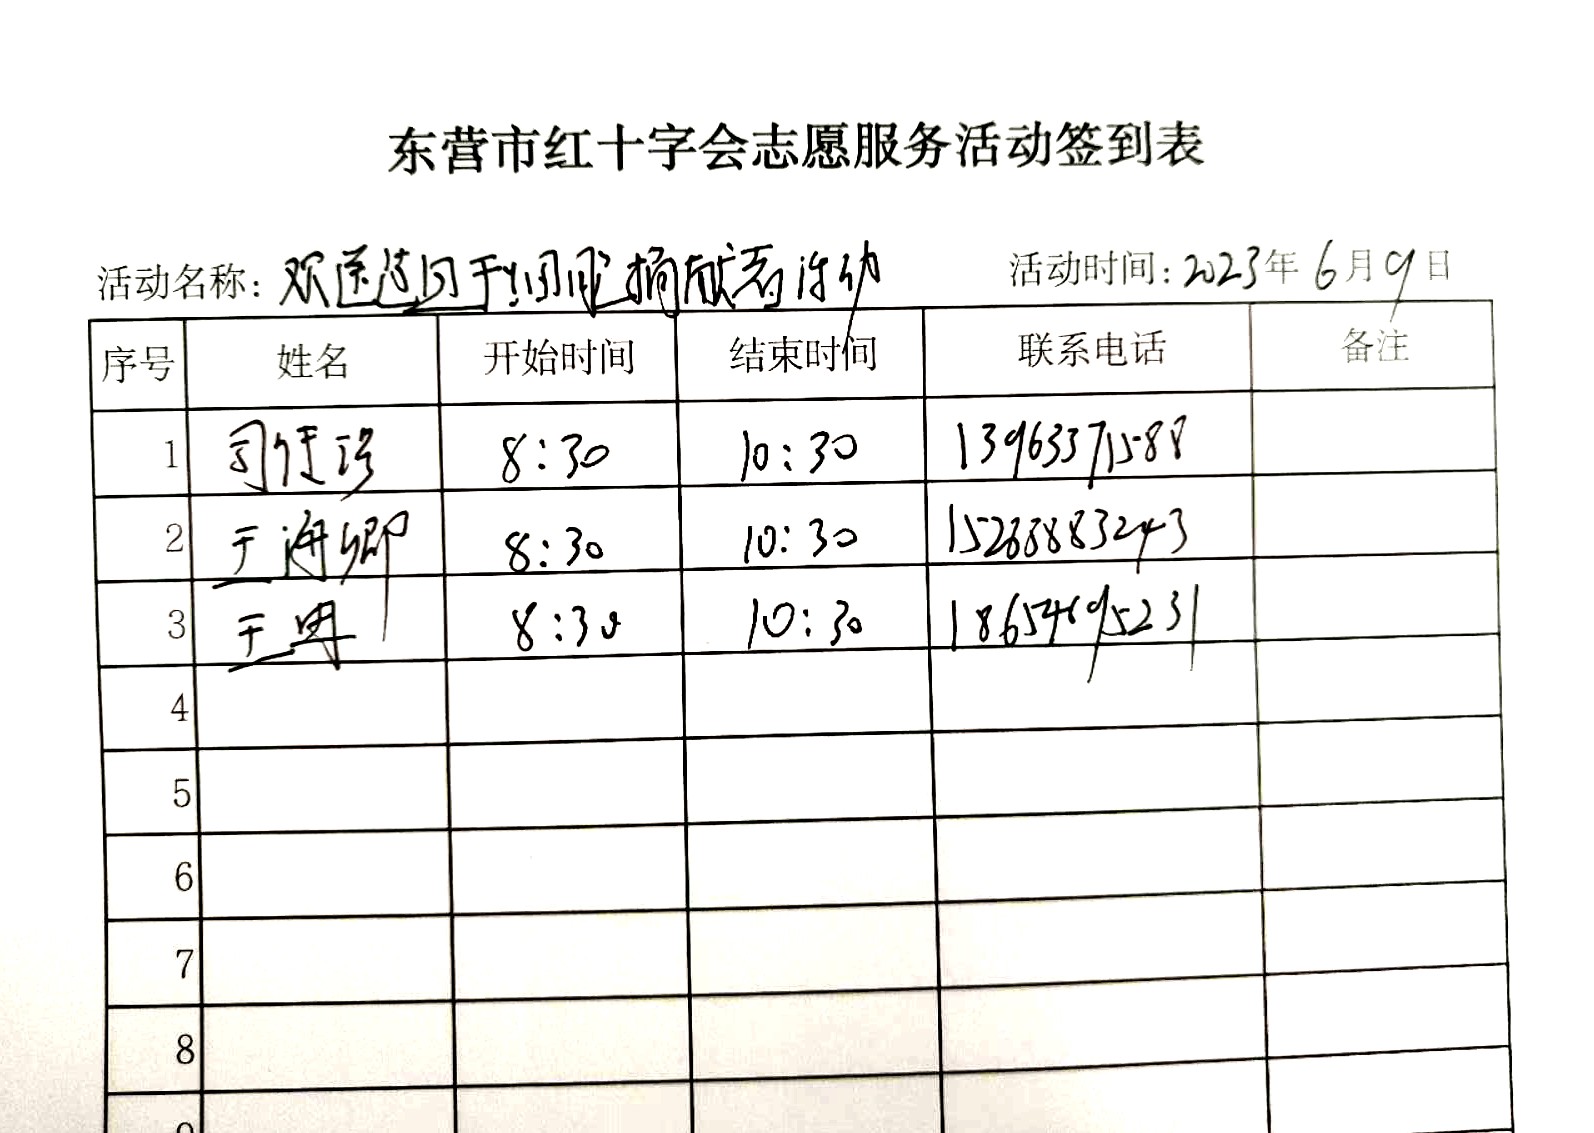 东营市红十字会志愿服务活动签到表
活动名称: 欢送造血干细胞捐献者活动 活动时间: 2023年6月9日
序号 姓名 开始时间 结束时间 联系电话 备注
1 8:30 10:30 13963371588
2 于海卿 8:30 10:30 15266883243
3 于冉 8:30 10:30 18654695231
4
5
6
7
8